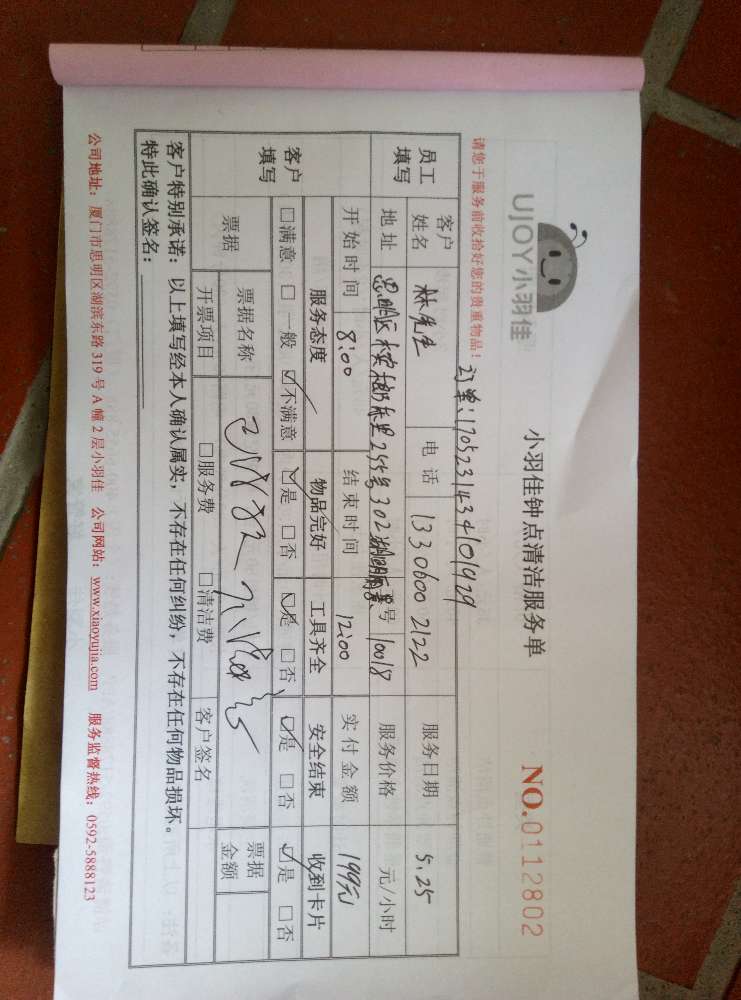 UJOY小羽佳
小羽佳钟点清洁服务单
NO.0112802
请您于服务前收拾好您的贵重物品！
订单：1705231434101929
员工填写
客户姓名 林先生 电话 13306002122 服务日期 5.25
地址 思明区 255号302 号 10018 服务价格 元/小时
开始时间 8:00 结束时间 12:00 实付金额 199元
客户填写
服务态度 物品完好 工具齐全 安全结束 收到卡片
□满意 □一般 ☑不满意 ☑是 □否 ☑是 □否 ☑是 □否 ☑是 □否
票据 票据名称 票据金额
开票项目 □服务费 □清洁费 客户签名
客户特别承诺：以上填写经本人确认属实，不存在任何纠纷，不存在任何物品损坏。
特此确认签名：
公司地址：厦门市思明区湖滨东路319号A幢2层小羽佳 公司网站：www.xiaoyujia.com 服务监督热线：0592-5888123